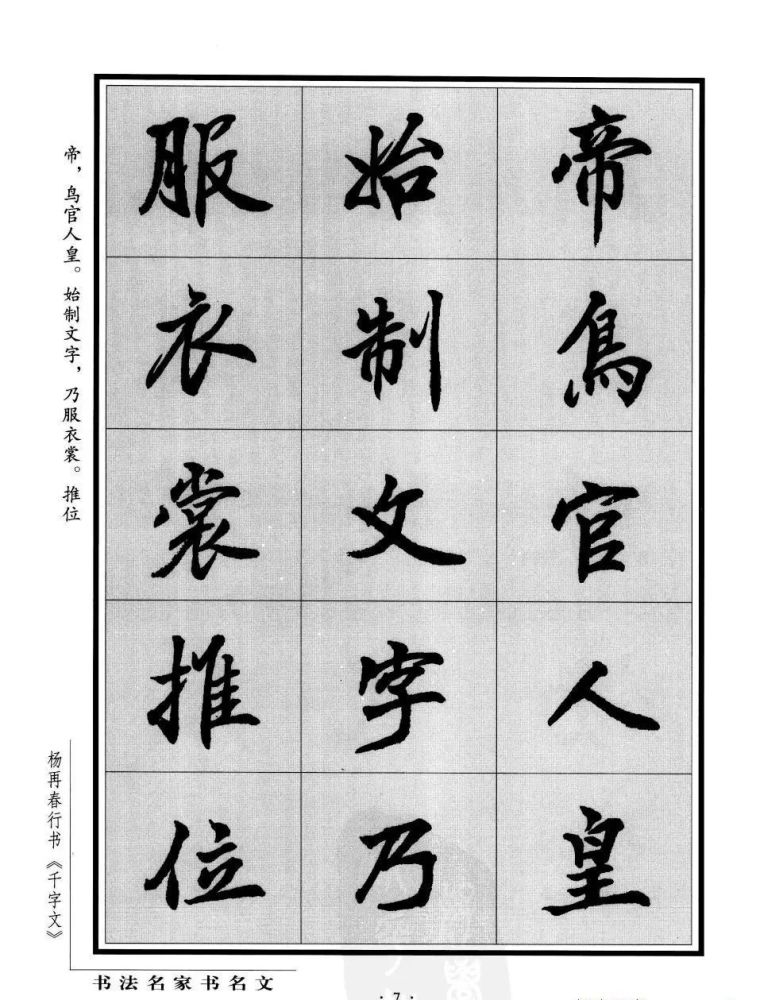 帝鳥官人皇
始制文字乃
服衣裳推位
帝，鸟官人皇。始制文字，乃服衣裳。推位
杨再春行书《千字文》
书法名家书名文
·7·